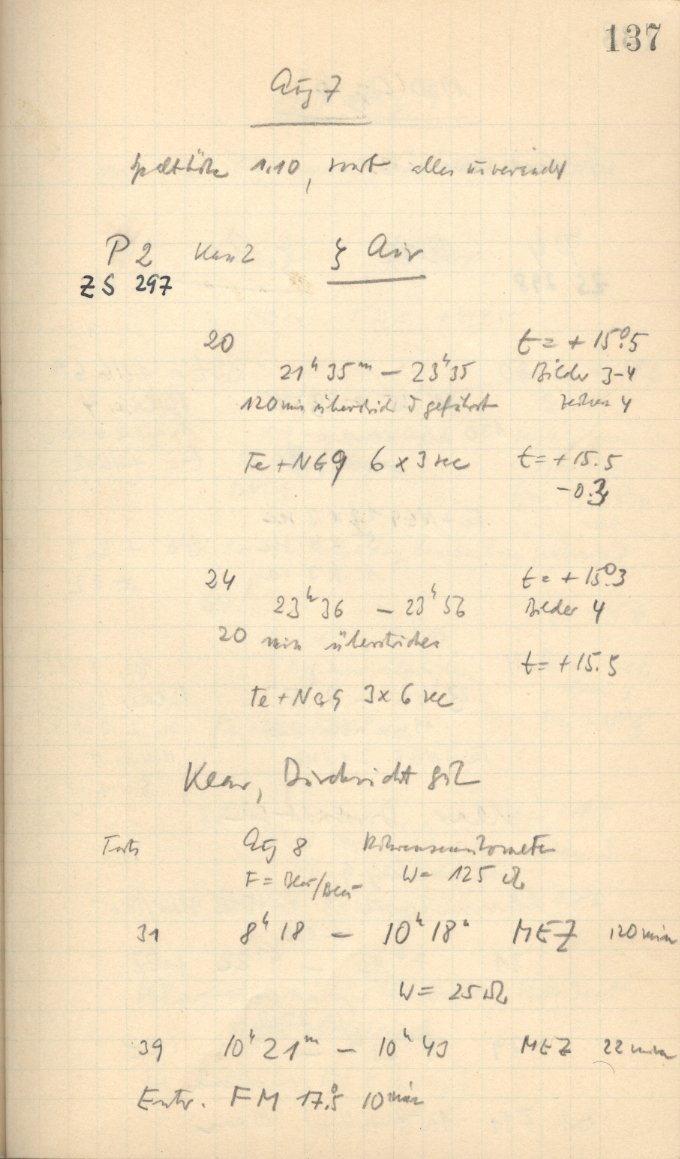 137
Aug 7
Spalthöhe 1.10, sonst alles unverändt
P 2 Kas 2 ζ Aur
ZS 297
20 t = + 15°.5
21ʰ 35ᵐ — 23ʰ 35 Bilder 3-4
120 min überstrich geführt 4
Fe + NG 9 6 x 3 sec t = + 15.5
- 0.3
24 t = + 15°.3
23ʰ 36 — 23ʰ 56 Bilder 4
20 min überstrichen
t = + 15.5
Fe + NG 9 3 x 6 sec
Klar, Durchsicht gut
Aug 8 Röhrensensitometer
F = Blau/Blau W = 125 Ω
31 8ʰ 18 — 10ʰ 18ᵐ MEZ 120 min
W = 25 Ω
39 10ʰ 21ᵐ — 10ʰ 43 MEZ 22 min
Entw. FM 17°.5 10 min